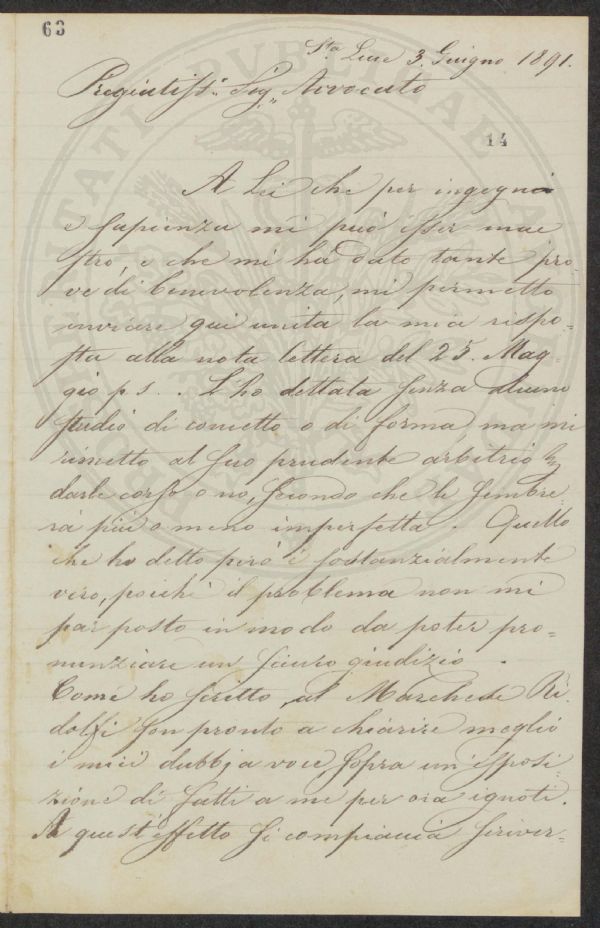 63
Sta Luce 3. Giugno 1891.
Pregiatiss. Sig. Avvocato
14
A Lei che per ingegno
e sapienza mi può esser mae
stro, e che mi ha dato tante pro-
ve di benevolenza, mi permetto
inviare qui unita la mia rispo-
sta alla nota lettera del 25. Mag-
gio p. s. . L'ho dettata senza alcuno
studio di concetto o di forma, ma mi
rimetto al suo prudente arbitrio
darle corso o no, secondo che le sembre-
rà più o meno imperfetta. Quello
che ho detto però è sostanzialmente
vero, poichè il problema non mi
par posto in modo da poter pro=
nunziare un sicuro giudizio.
Come ho scritto al Marchese Ri-
dolfi son pronto a chiarire meglio
i miei dubbj a voce sopra un'esposi-
zione di fatti a me per ora ignoti.
A quest'effetto si compiaccia scriver=